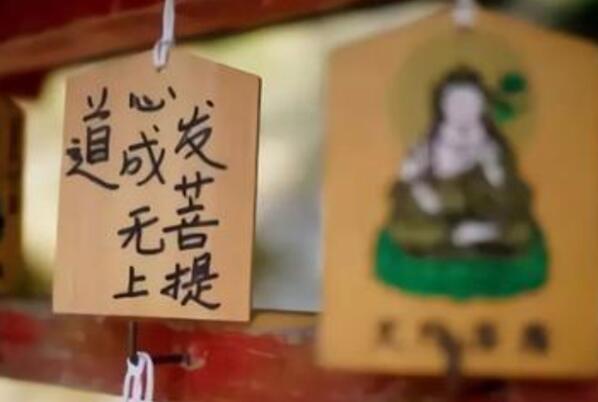 发菩提
心成无上
道